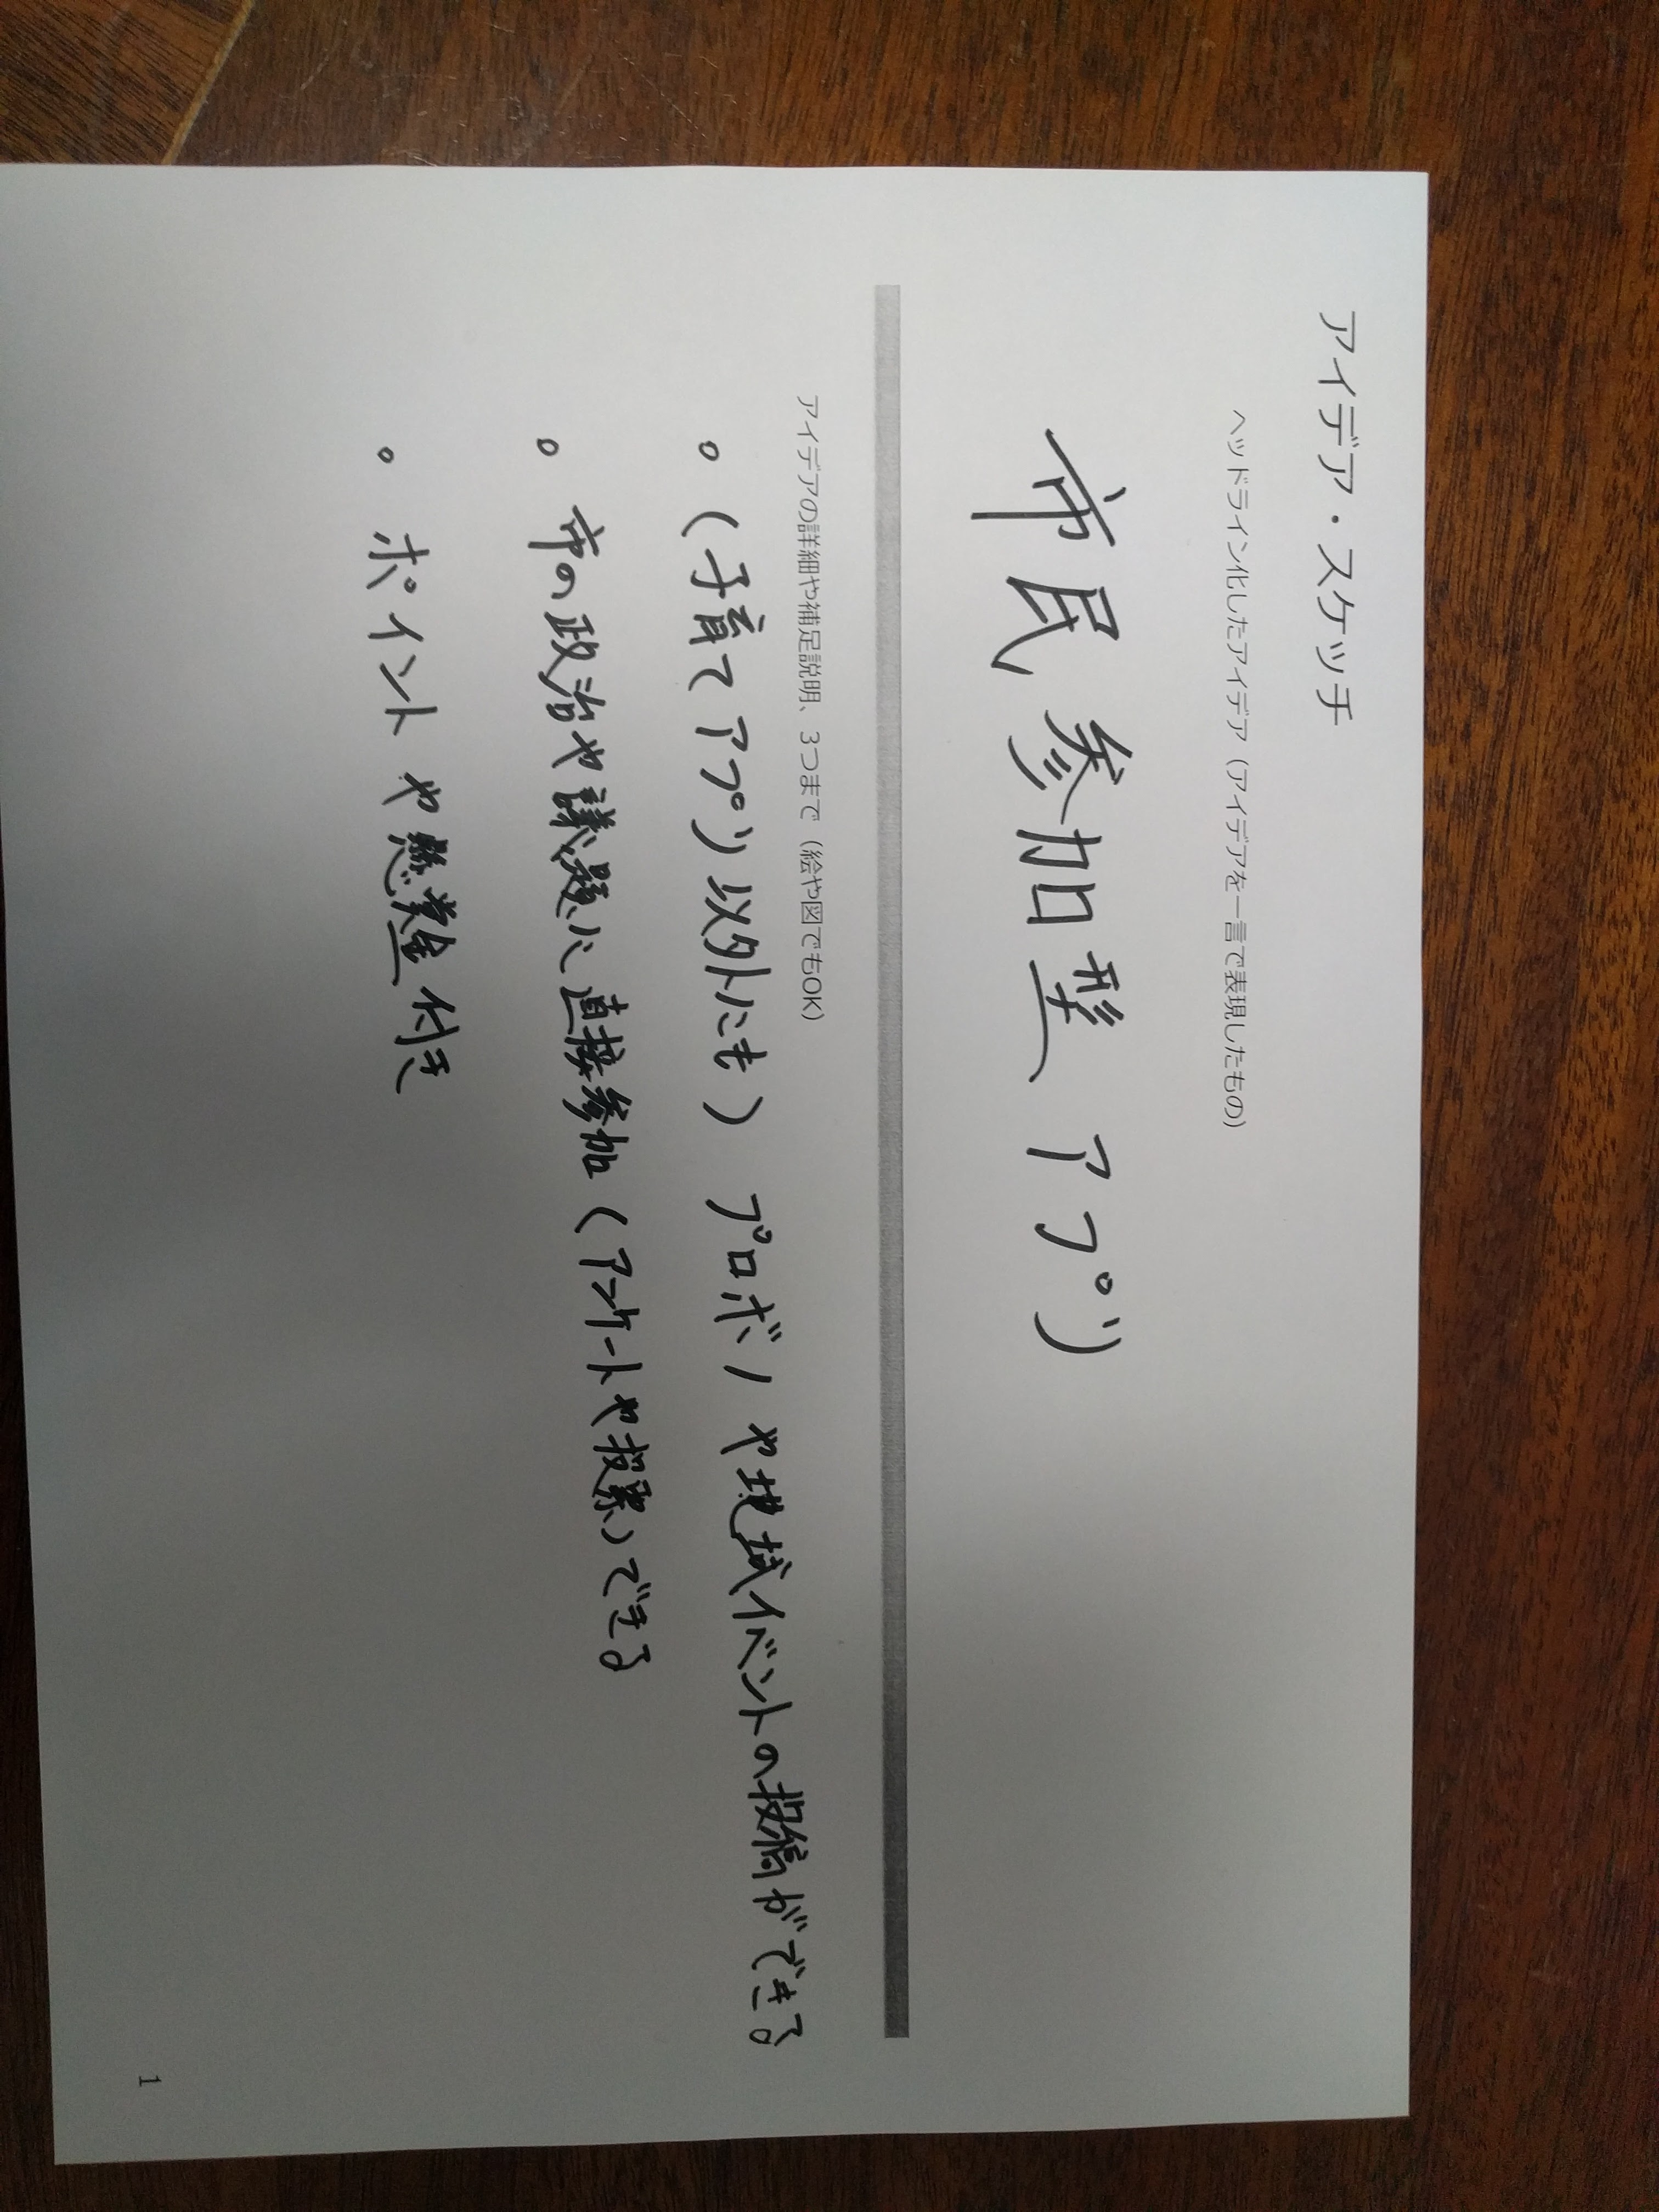 アイデア・スケッチ
ヘッドライン化したアイデア（アイデアを一言で表現したもの）
市民参加型 アプリ
アイデアの詳細や補足説明、3つまで（絵や図でもOK）
。（子育てアプリ以外にも） プロボノや地域イベントの投稿ができる
。市の政治や議題に直接参加（アンケートや投票）できる
。ポイントや懸賞金付き
1